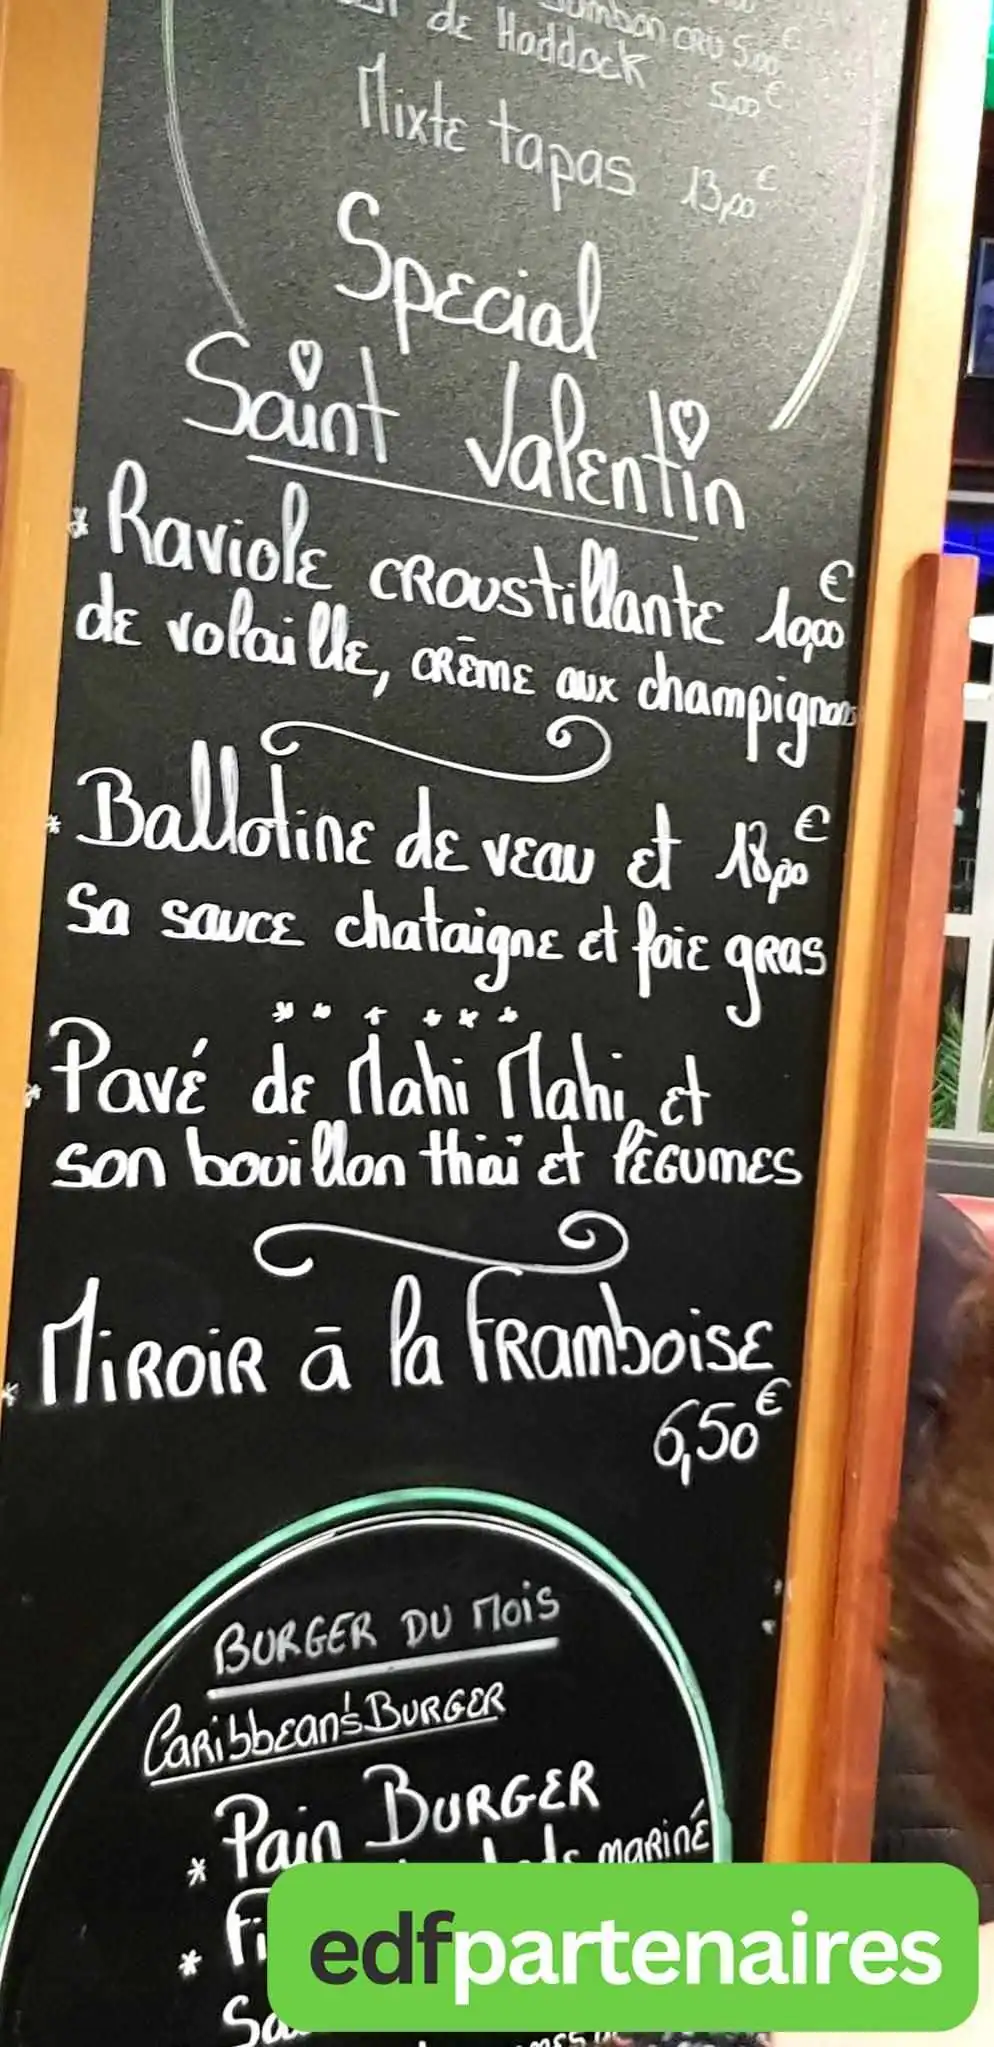 Jambon cru 5,00 €
de Haddock 5,00 €
Mixte tapas 13,00 €
Special
Saint Valentin
* Raviole croustillante 10,00 €
de volaille, crême aux champignons
* Ballotine de veau et 18,00 €
sa sauce chataigne et foie gras
* Pavé de Mahi Mahi et
son bouillon thaï et légumes
* Miroir à la Framboise
6,50 €
BURGER DU MOIS
Caribbean's BURGER
* Pain BURGER
mariné
*
edfpartenaires